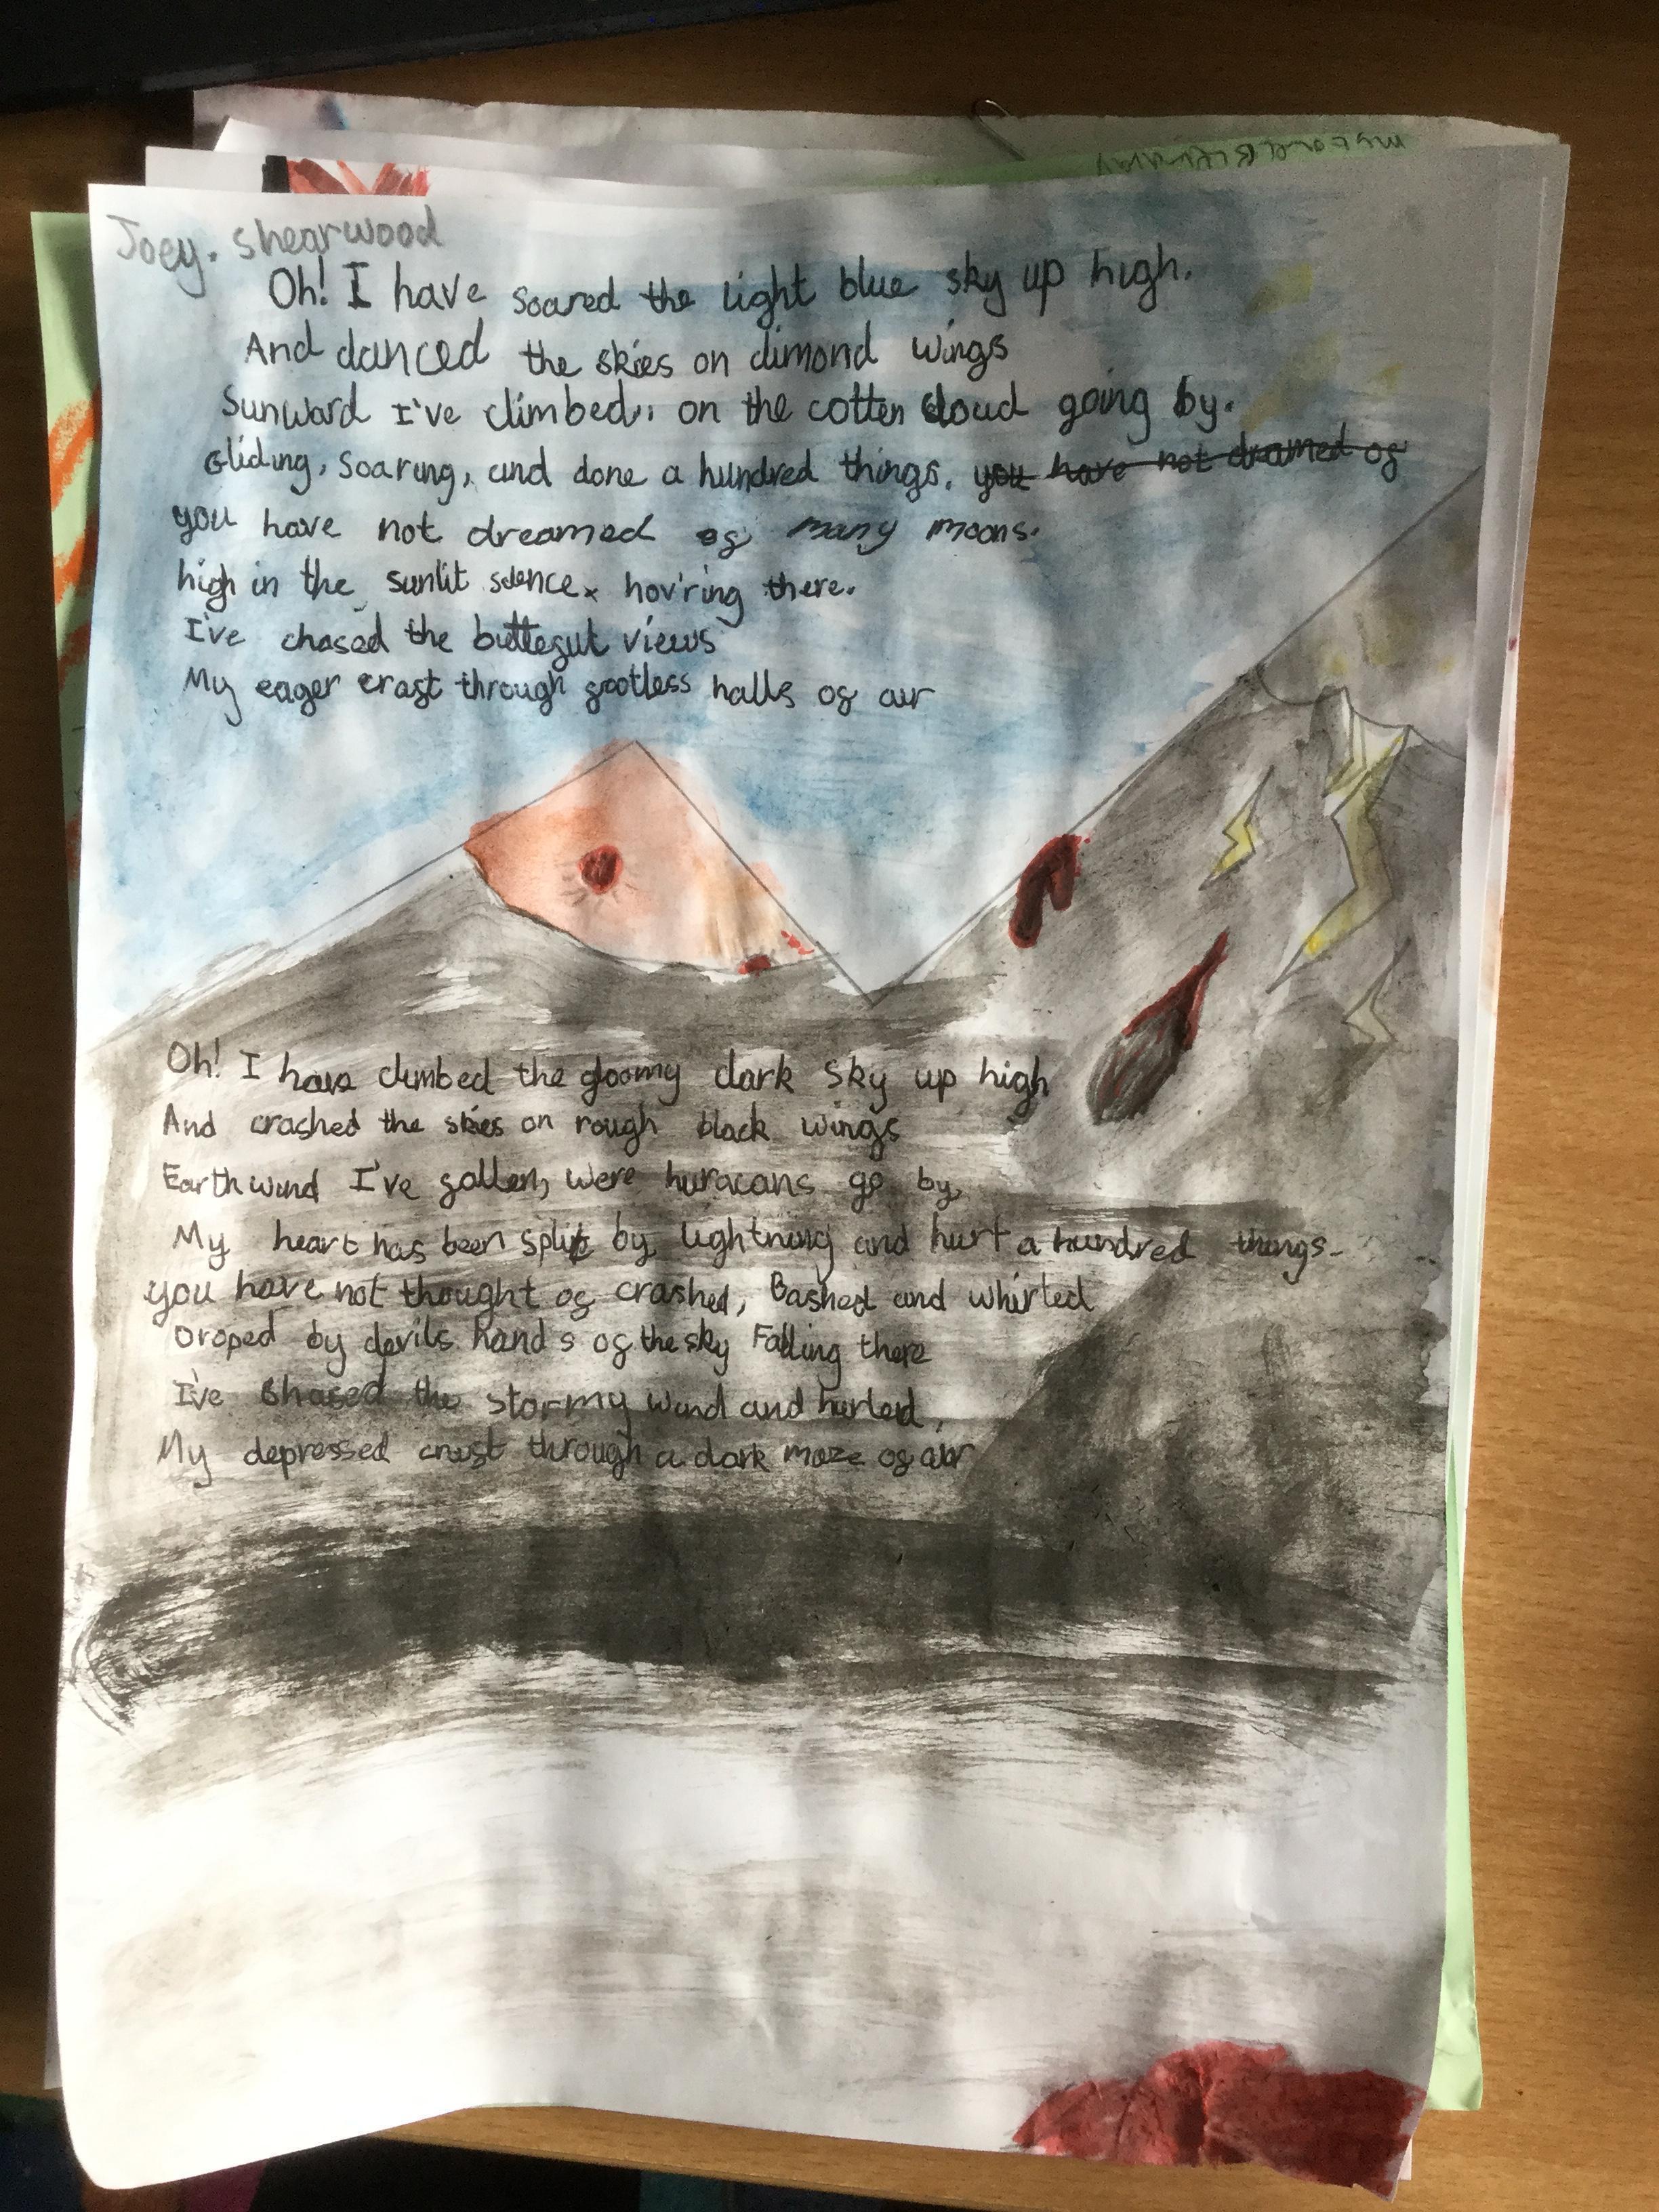 Joey. Shearwood
Oh! I have soared the light blue sky up high.
And danced the skies on dimond wings
Sunward I've climbed, on the cotten cloud going by.
Gliding, soaring, and done a hundred things. you have not dramed of
you have not dreamed of many moons.
high in the sunlit hov'ring there.
I've chased the views
My eager crast through footless halls of air
Oh! I have climbed the gloomy dark sky up high
And crashed the skies on rough black wings
Earthwind I've fallen, were huracans go by,
My heart has been split by lightning and hurt a hundred things.
you have not thought of crashed, Bashed and whirled
Droped by devils hands of the sky Falling there
I've Shased the stormy wind and hurled,
My depressed crast through a dark maze of air